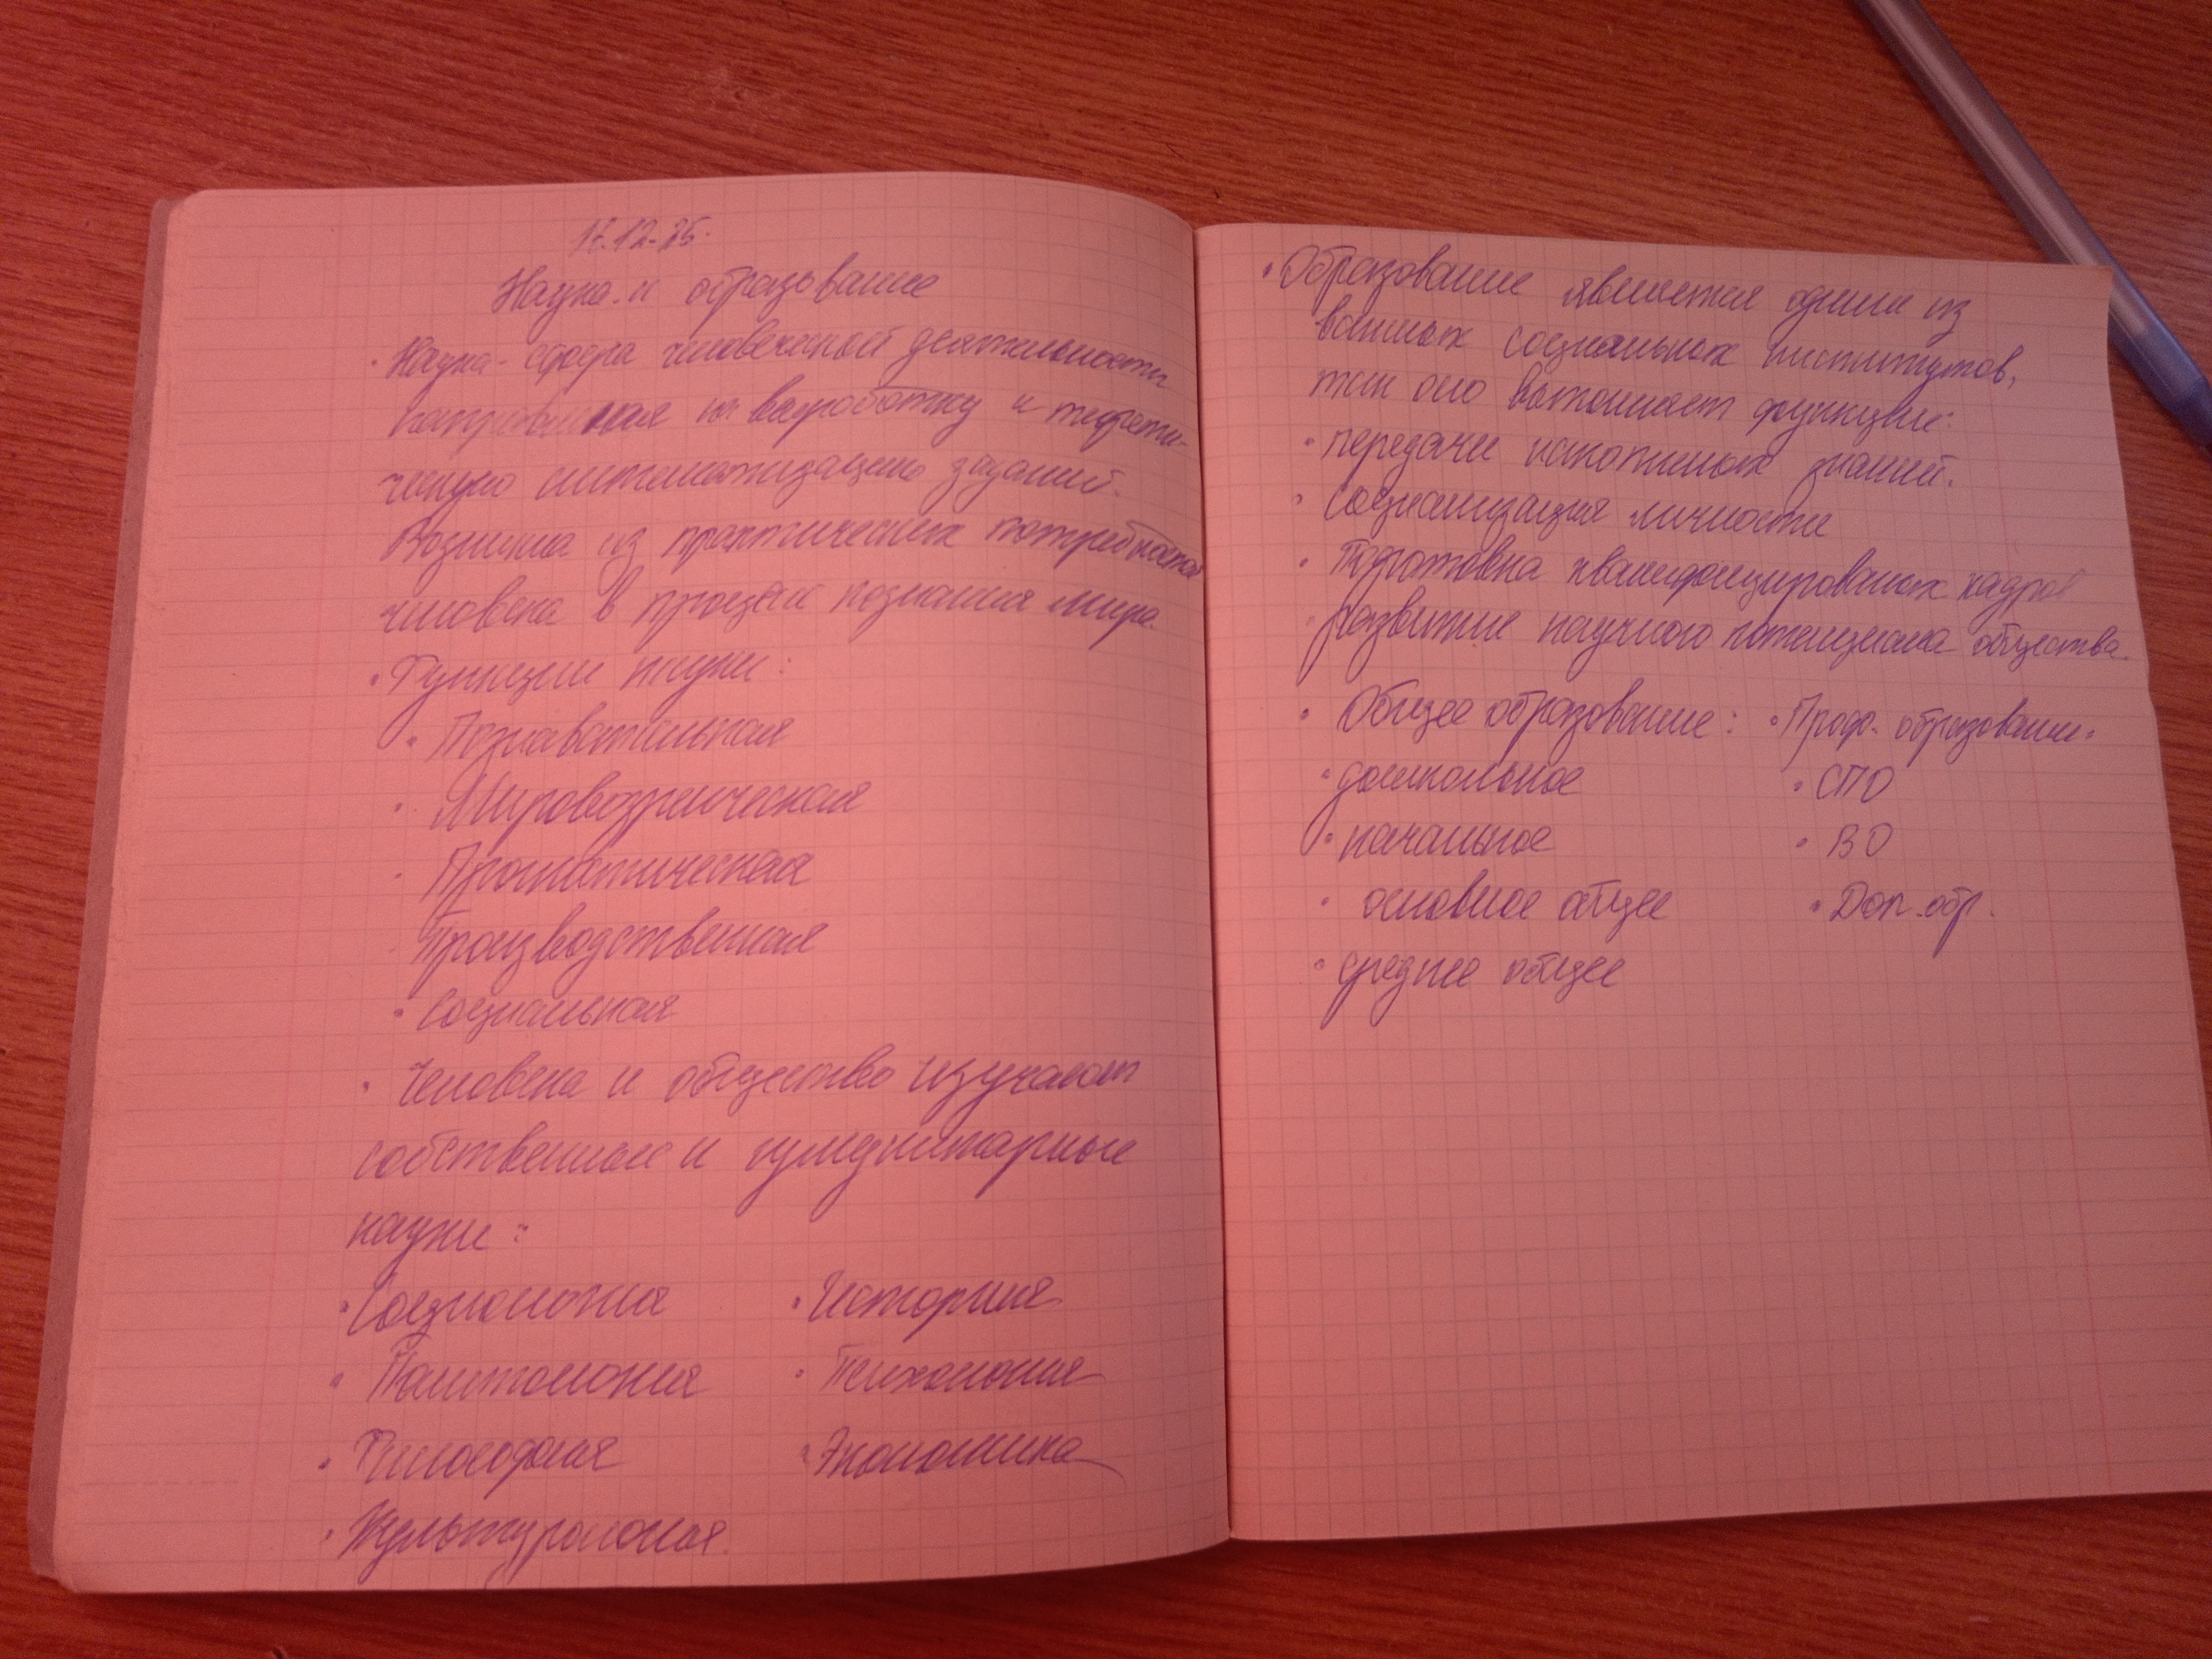 17.12.25.
Наука и образование
· Наука - сфера человеческой деятельности
направленая на выработку и теорети-
ческую систематизацию заданий.
Возникла из практических потребностей
человека в процессе познания мира.
· Функции науки:
· Познавательная
· Мировозренческая
· Прогностическая
Производственная
· Социальная
· Человека и общество изучают
собственные и гуманитарные
науки:
· Социология · История
· Политология · Психология
· Философия · Экономика
· Культурология.
· Образование является одним из
важных социальных институтов,
так оно выполняет функции:
· передачи накопленых знаний.
· Социализация личности
· Подготовка квалифицированых кадров
· развитие научного потенциала общества.
· Общее образование: · Проф. образование:
· дошкольное · СПО
· начальное · ВО
· основное общее · Доп. обр.
· среднее общее